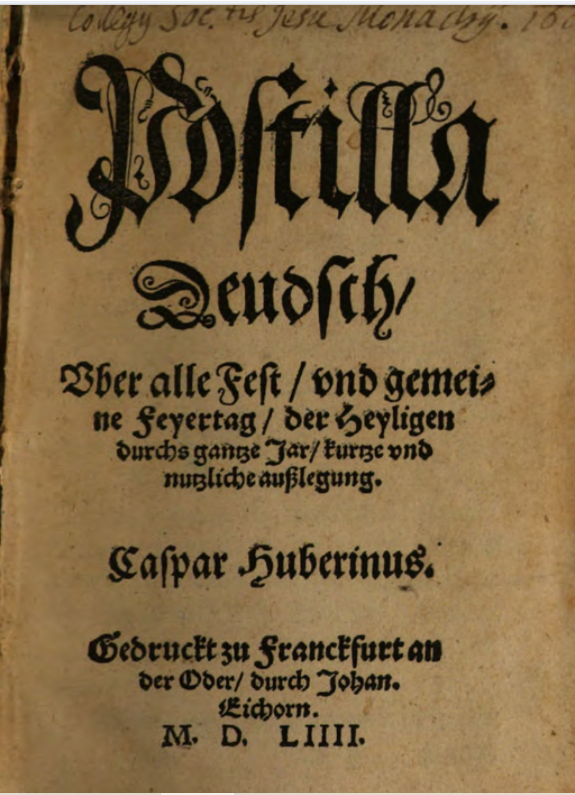 Collegij Soc.tis Jesu Monachij. 16
Postilla
Deudsch/
Vber alle Fest / vnd gemei⸗
ne Feyertag / der Heyligen
durchs gantze Jar/ kurtze vnd
nutzliche außlegung.
Caspar Huberinus.
Gedruckt zu Franckfurt an
der Oder/ durch Johan.
Eichorn.
M. D. LIIII.